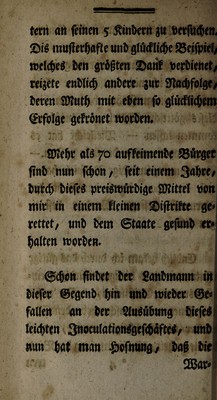 tern an seinen 5 Kindern zu versuchen.
Dis musterhafte und glückliche Beispiel,
welches den größten Dank verdienet,
reizete endlich andere zur Nachfolge,
deren Muth mit eben so glücklichem
Erfolge gekrönet worden.
Mehr als 70 aufkeimende Bürger
sind nun schon, seit einem Jahre,
durch dieses preiswürdige Mittel von
mir in einem kleinen Distrikte ge-
rettet, und dem Staate gesund er-
halten worden.
Schon findet der Landmann in
dieser Gegend hin und wieder Ge-
fallen an der Ausübung dieses
leichten Inoculationsgeschäftes, und
nun hat man Hofnung, daß die
War-